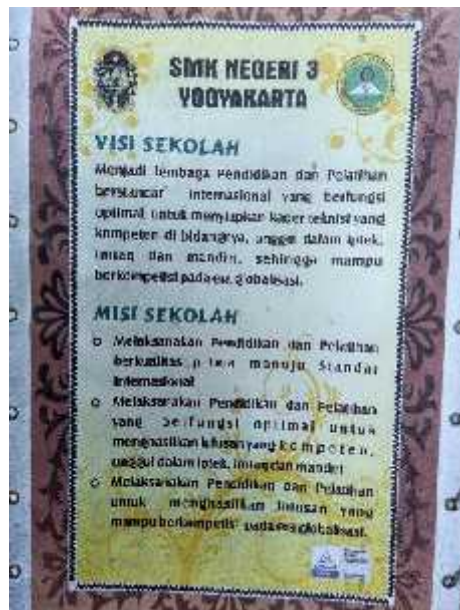 SMK NEGERI 3
YOGYAKARTA
VISI SEKOLAH
Menjadi lembaga Pendidikan dan Pelatihan
berstandar internasional yang berfungsi
optimal, untuk menyiapkan kader teknisi yang
kompeten di bidangnya, unggul dalam iptek,
imtaq dan mandiri, sehingga mampu
berkompetisi pada era globalisasi.
MISI SEKOLAH
Melaksanakan Pendidikan dan Pelatihan
berkualitas prima menuju Standar
Internasional
Melaksanakan Pendidikan dan Pelatihan
yang berfungsi optimal untuk
menghasilkan lulusan yang kompeten,
unggul dalam iptek, imtaq dan mandiri
Melaksanakan Pendidikan dan Pelatihan
untuk menghasilkan lulusan yang
mampu berkompetisi pada era globalisasi.